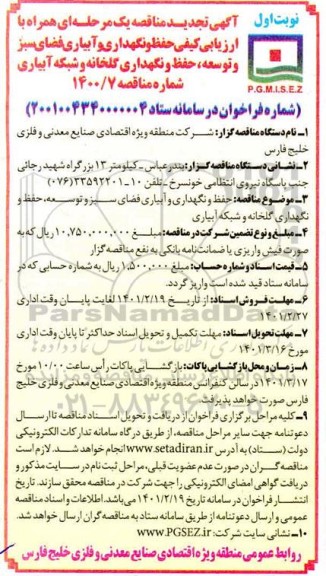 نوبت اول
P.G.M.I.S.E.Z
آگهی تجدید مناقصه یک مرحله‌ای همراه با
ارزیابی کیفی حفظ و نگهداری و آبیاری فضای سبز
و توسعه، حفظ و نگهداری گلخانه و شبکه آبیاری
شماره مناقصه ۱۴۰۰/۷
(شماره فراخوان در سامانه ستاد ۲۰۰۱۰۰۴۳۴۰۰۰۰۰۰۴)
۱- نام دستگاه مناقصه گزار: شرکت منطقه ویژه اقتصادی صنایع معدنی و فلزی
خلیج فارس
۲- نشانی دستگاه مناقصه گزار: بندرعباس - کیلومتر ۱۳ بزرگراه شهید رجائی
جنب پاسگاه نیروی انتظامی خونسرخ - تلفن ۱۰-۳۳۵۹۲۲۰۱ (۰۷۶)
۳- موضوع مناقصه: حفظ و نگهداری و آبیاری فضای سبز و توسعه، حفظ و
نگهداری گلخانه و شبکه آبیاری
۴- مبلغ و نوع تضمین شرکت در مناقصه: مبلغ ۱۰,۷۵۰,۰۰۰,۰۰۰ ریال که به
صورت فیش واریزی یا ضمانت‌نامه بانکی به نفع مناقصه گزار
۵- قیمت اسناد و شماره حساب: مبلغ ۱,۵۰۰,۰۰۰ ریال به شماره حسابی که در
سامانه ستاد قید شده است واریز گردد.
۶- مهلت فروش اسناد: از تاریخ ۱۴۰۱/۲/۱۹ لغایت پایان وقت اداری
۱۴۰۱/۲/۲۷
۷- مهلت تحویل اسناد: مهلت تکمیل و تحویل اسناد حداکثر تا پایان وقت اداری
مورخ ۱۴۰۱/۳/۱۶
۸- زمان و محل بازگشایی پاکات: بازگشایی پاکات رأس ساعت ۱۰/۰۰ مورخ
۱۴۰۱/۳/۱۷ در سالن کنفرانس منطقه ویژه اقتصادی صنایع معدنی و فلزی خلیج
فارس صورت خواهد پذیرفت.
۹- کلیه مراحل برگزاری فراخوان از دریافت و تحویل اسناد مناقصه تا ارسال
دعوتنامه جهت سایر مراحل مناقصه، از طریق درگاه سامانه تدارکات الکترونیکی
دولت (ستاد) به آدرس www.setadiran.ir انجام خواهد شد. لازم است
مناقصه گران در صورت عدم عضویت قبلی، مراحل ثبت نام در سایت مذکور و
دریافت گواهی امضای الکترونیکی را جهت شرکت در مناقصه محقق سازند. تاریخ
انتشار فراخوان در سامانه تاریخ ۱۴۰۱/۲/۱۹ می‌باشد. اطلاعات و اسناد مناقصه
عمومی و ارسال دعوتنامه از طریق سامانه ستاد به مناقصه گران ارسال خواهد شد.
۱۰- نشانی سایت شرکت: www.PGSEZ.ir
روابط عمومی منطقه ویژه اقتصادی صنایع معدنی و فلزی خلیج فارس
ParsNamadData